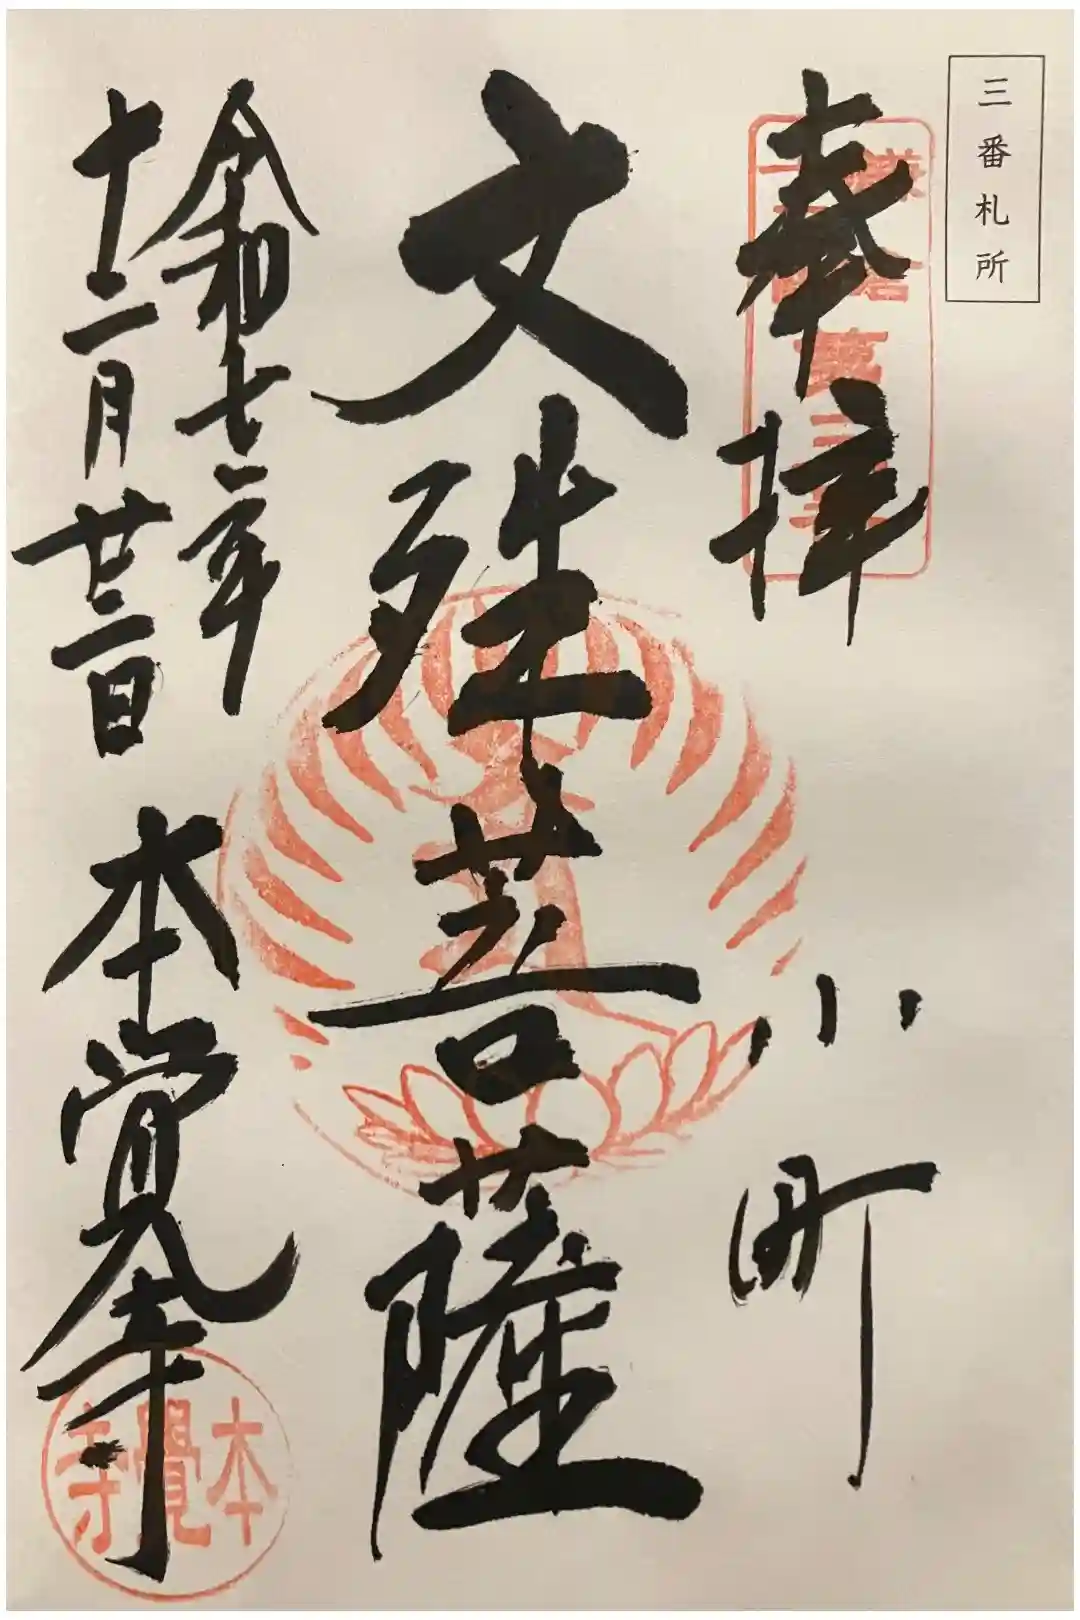 三番札所
奉拝
小町
文殊菩薩
令和七年
十二月廿三日
本覚寺
本覺寺